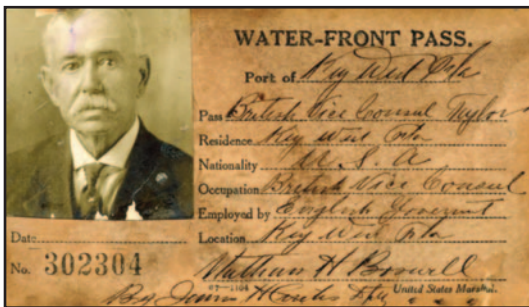 WATER-FRONT PASS.
Port of Key West Fla
Pass British Vice Consul Taylor
Residence Key West Fla
Nationality U. S. A
Occupation British Vice Consul
Employed by English Goverment
Location Key West Fla
Date
No. 302304
Nathan H Boswell
United States Marshal.
By James